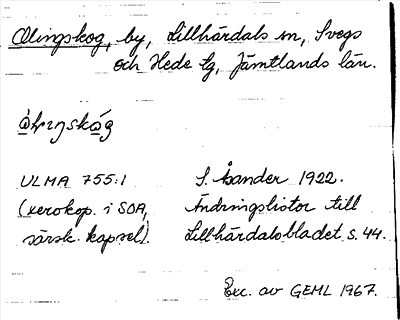 Olingskog, by, Lillhärdals sn, Svegs
och Hede tg, Jämtlands län.
ULMA 755:1 S. Åander 1922.
(xerokop. i SOA, Ändringslistor till
särsk. kapsel). Lillhärdalsbladet s. 44.
Exc. av GEML 1967.